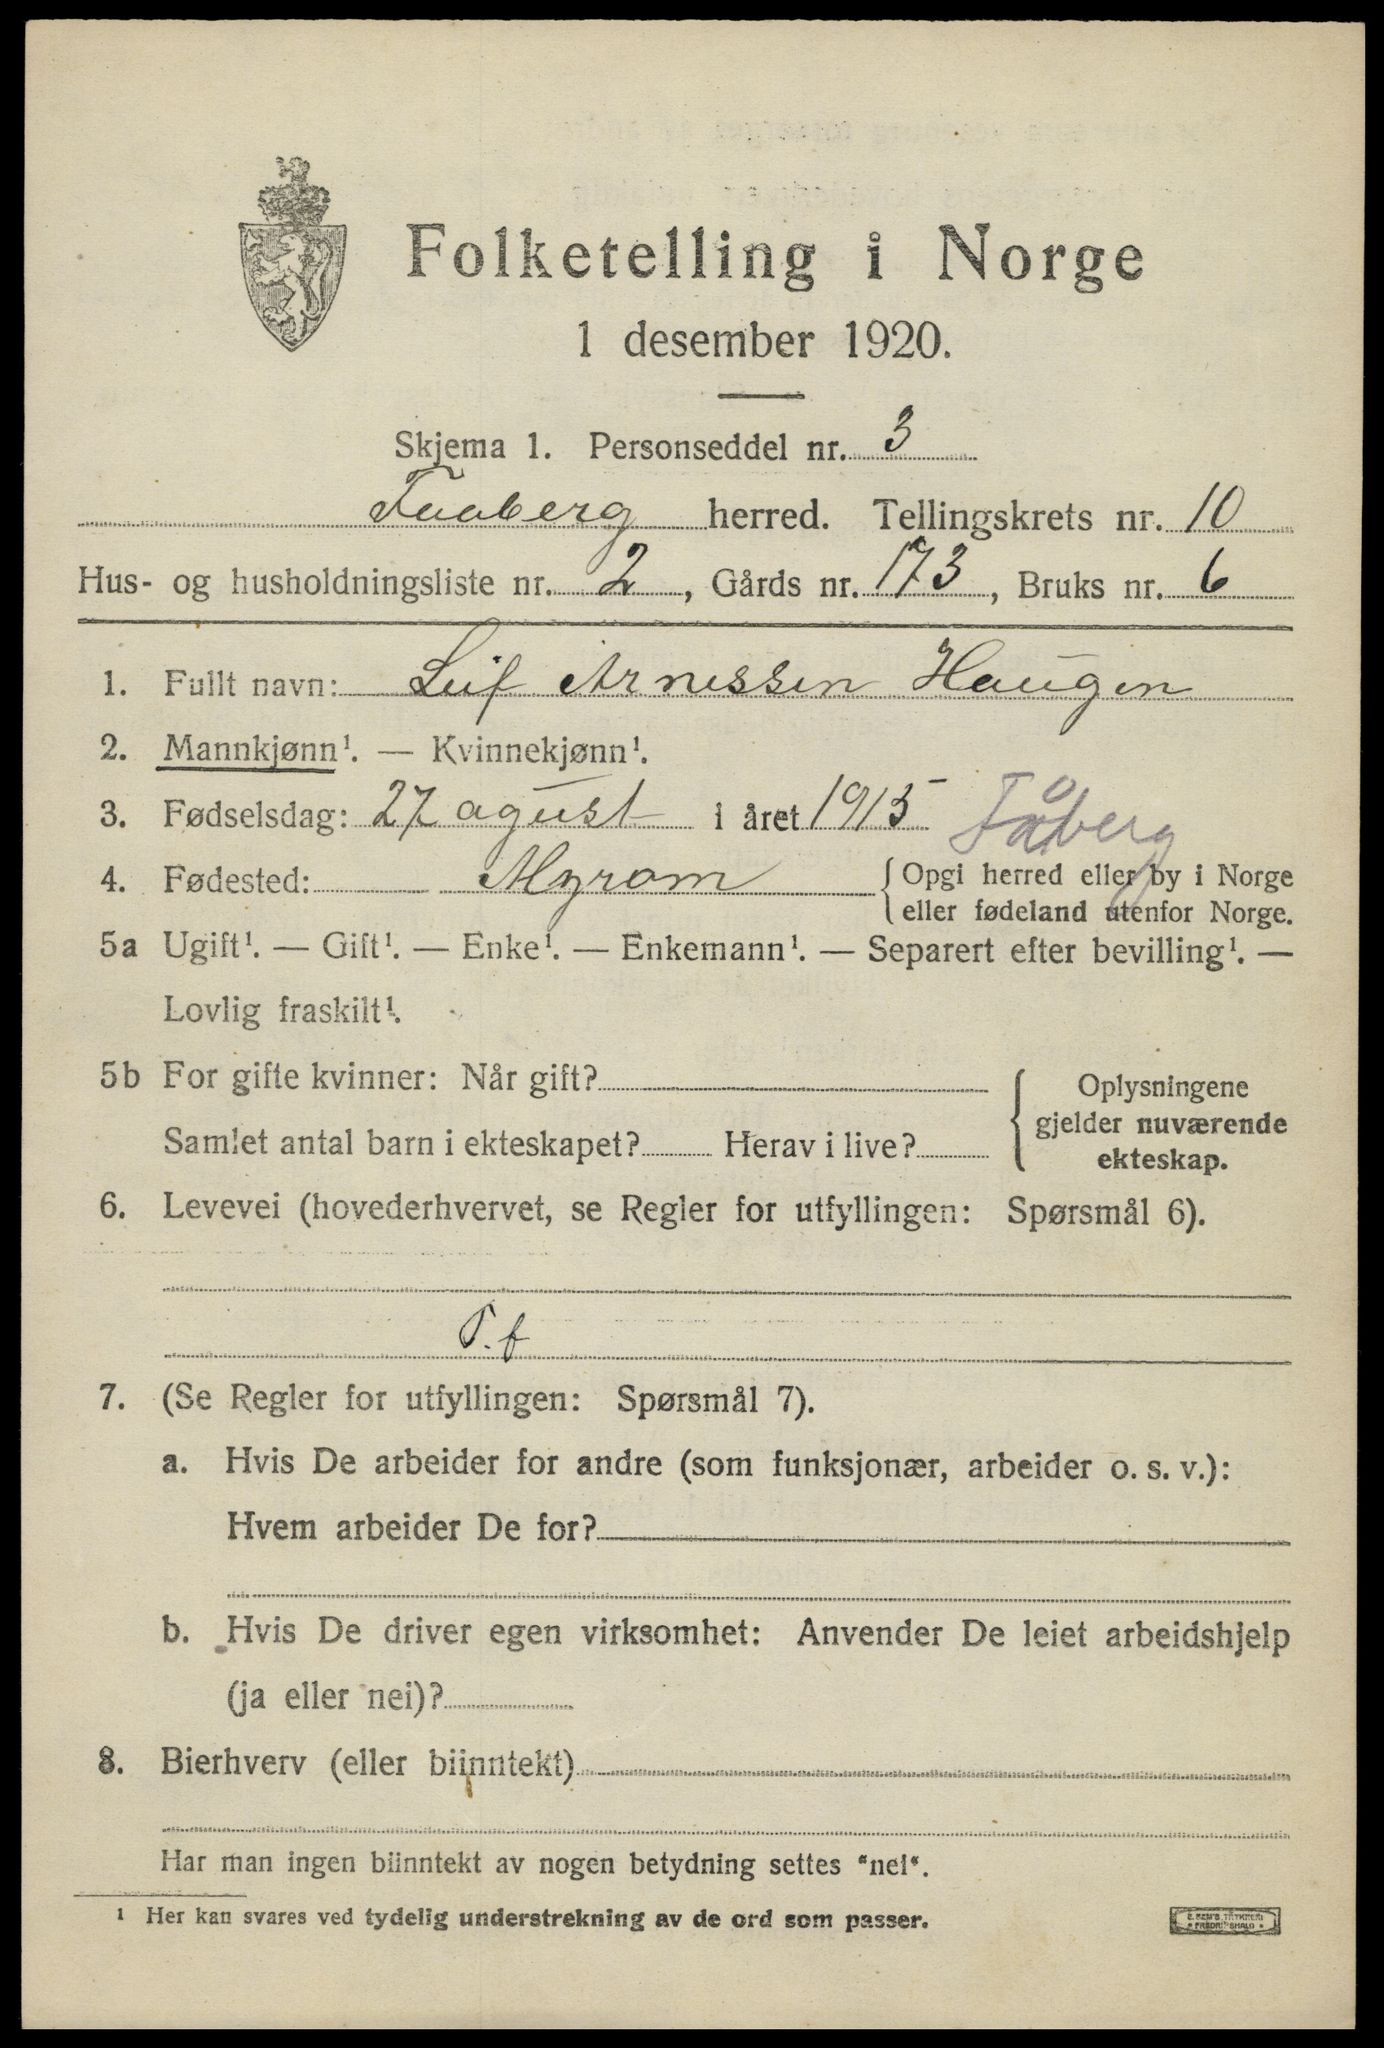 Folketelling i Norge
1 desember 1920.
Skjema 1. Personseddel nr. 3
Faaberg herred. Tellingskrets nr. 10
Hus- og husholdningsliste nr. 2, Gårds nr. 173, Bruks nr. 6
1. Fullt navn: Leif Arnessen Haugen
2. Mannkjønn¹. — Kvinnekjønn¹.
3. Fødselsdag: 27 agust i året 1915 Fåberg
4. Fødested: Myrom { Opgi herred eller by i Norge
eller fødeland utenfor Norge.
5a Ugift¹. — Gift¹. — Enke¹. — Enkemann¹. — Separert efter bevilling¹. —
Lovlig fraskilt¹.
5b For gifte kvinner: Når gift? { Oplysningene
gjelder nuværende
Samlet antal barn i ekteskapet? Herav i live?
ekteskap.
6. Levevei (hovederhvervet, se Regler for utfyllingen: Spørsmål 6).
F.f
7. (Se Regler for utfyllingen: Spørsmål 7).
a. Hvis De arbeider for andre (som funksjonær, arbeider o. s. v.):
Hvem arbeider De for?
b. Hvis De driver egen virksomhet: Anvender De leiet arbeidshjelp
(ja eller nei)?
8. Bierhverv (eller biinntekt)
Har man ingen biinntekt av nogen betydning settes "nei".
¹ Her kan svares ved tydelig understrekning av de ord som passer.